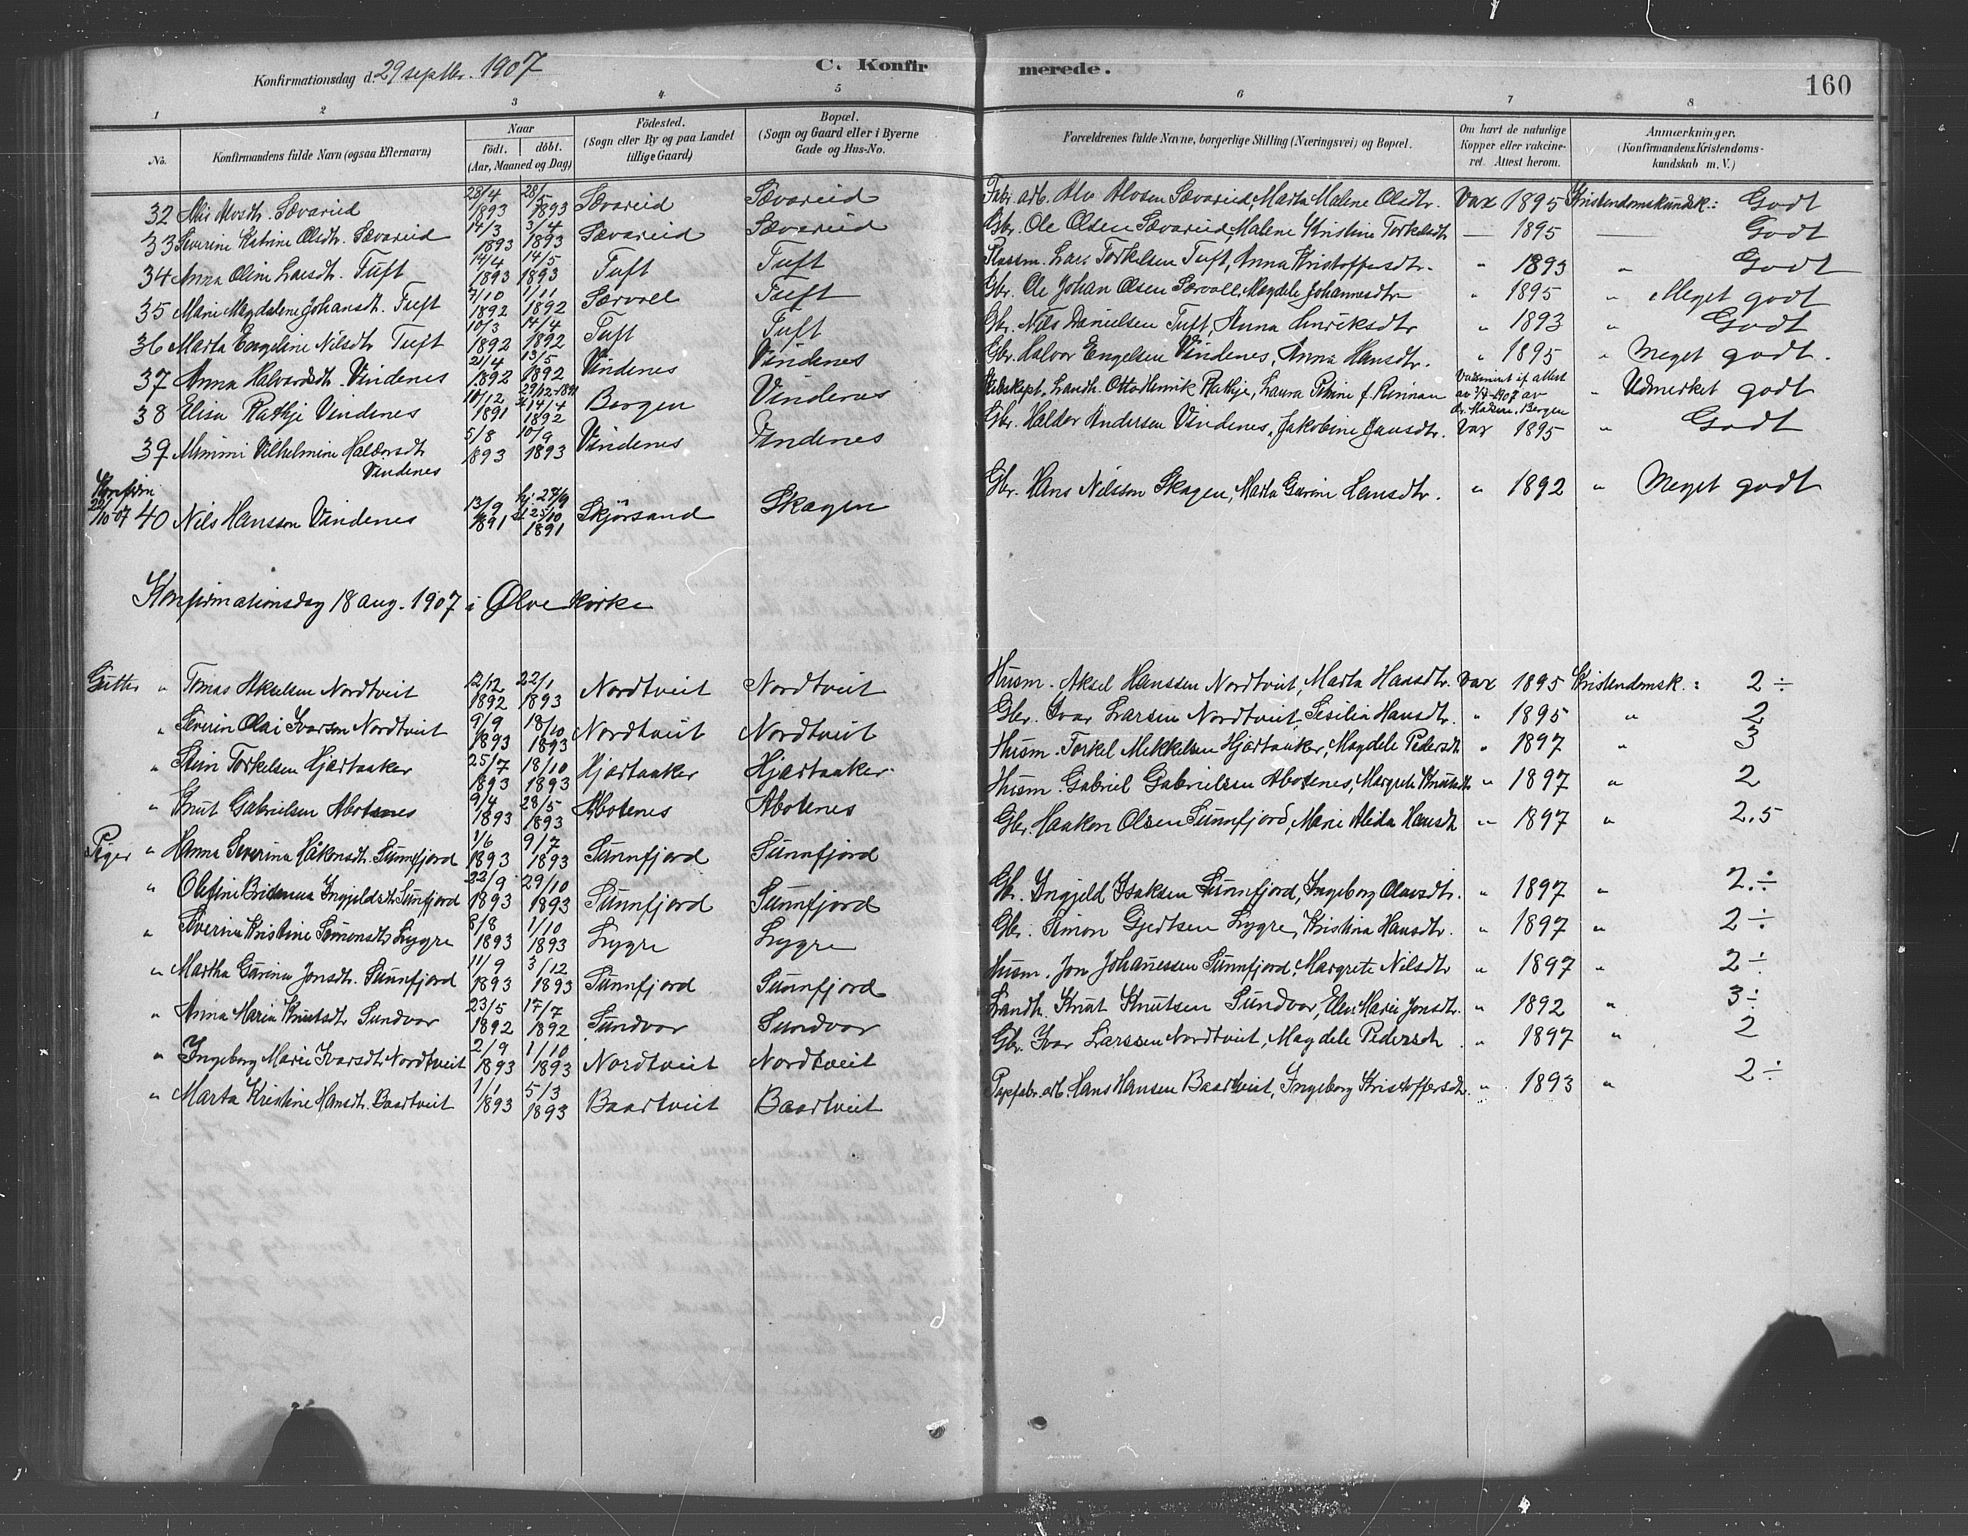 Konfirmationsdag d. 29 septbr. 1907 C. Konfirmerede. 160
1 2 3 4 5 6 7 8
No. Konfirmandens fulde Navn (ogsaa Efternavn) Naar födt. döbt. (Aar, Maaned og Dag) Födested. (Sogn eller By og paa Landet tillige Gaard) Bopæl. (Sogn og Gaard eller i Byerne Gade og Hus-No. Forældrenes fulde Navne, borgerlige Stilling (Næringsvei) og Bopæl. Om havt de naturlige Kopper eller vaccineret. Attest herom. Anmærkninger. (Konfirmandens Kristendomskundskab m. V.)
32 Alvsdtr. Sævareid 28/4 1893 28/5 1893 Sævareid Sævareid Fabr. arb. Alv Alvsen Sævareid, Marta Malene Olsdtr. Vax 1895 Kristendomskundsk.: Godt
33 Severine Katrine Olsdtr. Sævareid 14/3 1893 3/4 1893 Sævareid Sævareid Gbr. Ole Olsen Sævareid, Malene Kristine Torkelsdtr — 1895 — Godt
34 Anna Oline Larsdtr. Tuft 14/4 1893 14/5 1893 Tuft Tuft Lars Torkelsen Tuft, Anna Kristoffersdtr. " 1893 " Godt
35 Marie Magdalene Johansdtr. Tuft 7/10 1892 1/11 1892 Særvoll Tuft Gbr. Ole Johan Olsen Særvoll, Magdele Johannesdtr " 1895 " Meget godt
36 Marta Engeline Nilsdtr Tuft 10/3 1892 14/4 1892 Tuft Tuft Gbr. Nils Danielsen Tuft, Anna Hinriksdtr " 1893 " Godt
37 Anna Halvardsdtr. Vindenes 21/4 1892 13/5 1892 Vindenes Vindenes Gbr. Halvor Engelsen Vindenes, Anna Hansdtr. " 1895 " Meget godt.
38 Elisa Rathje Vindenes 10/12 1891 29/12-1891 st 14/4 1892 Bergen Vindenes Landh. Otto Henrik Rathje, Laura Petrine f. Rinnan Vaccineret if. attest av 3/4-1907 av dr. Madsen, Bergen " Udmerket godt
39 Mimmi Vilhelmine Haldorsdtr Vindenes 5/8 1893 10/9 1893 Vindenes Vindenes Gbr. Haldor Andersen Vindenes, Jakobine Jansdtr. Vax 1895 " Godt
Konfirm 22/10-07 40 Nils Hansson Vindenes 13/9 1891 hj. 27/9 st 25/10 1891 Skjørsand Skagen Gbr. Hans Nilsson Skagen, Marta Gurine Hansdtr. " 1892 " Meget godt
Konfirmationsdag 18 aug. 1907 i Ølve kirke
Gutter " Tomas Akselsen Nordtveit 12/12 1892 22/1 1893 Nordtveit Nordtveit Husm. Aksel Hanssen Nordtveit, Marta Hansdtr. vax 1895 Kristendomsk.: 2 ÷
" Severin Olai Ivarsen Nordtveit 9/9 1893 18/10 1893 Nordtveit Nordtveit Gbr. Ivar Larsen Nordtveit, Sesilia Hansdtr. " 1895 " 2
" Stein Torkelsen Hjartaaker 25/7 1893 18/10 1893 Hjartaaker Hjartaaker Husm. Torkel Mikkelsen Hjartaaker, Magdele Pedersdtr " 1897 " 3
" Knut Gabrielsen Abotenes 9/4 1893 28/5 1893 Abotenes Abotenes Husm. Gabriel Gabrielsen Abotenes, Margrete Knutsdtr " 1897 " 2
Piger " Hanna Severina Håkonsdtr. Sunnfjord 1/6 1893 9/7 1893 Sunnfjord Sunnfjord Gbr. Haakon Olsen Sunnfjord, Marie Alida Hansdtr " 1897 " 2.5
" Olefine Ingjeldsdtr Sunnfjord 22/9 1893 29/10 1893 Sunnfjord Sunnfjord Gbr. Ingjeld Isaksen Sunnfjord, Ingeborg Olavsdtr. " 1897 " 2.÷
" Severina Kristine Simonsdtr Lygre 8/8 1893 1/10 1893 Lygre Lygre Gbr. Simon Gjertsen Lygre, Kristina Hansdtr. " 1897 " 2 ÷
" Martha Gurina Jonsdtr. Sunnfjord 11/9 1893 3/12 1893 Sunnfjord Sunnfjord Husm. Jon Johanessen Sunnfjord, Margrete Nilsdtr " 1897 " 2 ÷
" Anna Maria Knutsdtr Sundvor 23/5 1892 17/7 1892 Sundvor Sundvor Landh. Knut Knutsen Sundvor, Elen Marie Jonsdtr. " 1892 " 3 ÷
" Ingeborg Marie Ivarsdtr Nordtveit 2/9 1893 1/10 1893 Nordtveit Nordtveit Gbr. Ivar Larssen Nordtveit, Magdele Pedersdtr " 1897 " 2
" Marta Kristine Hansdtr. Baardtveit 1/1 1893 5/3 1893 Baartveit Baartveit Papfabr. arb. Hans Hansen Baartveit, Ingeborg Kristoffersdtr. " 1893 " 2 ÷